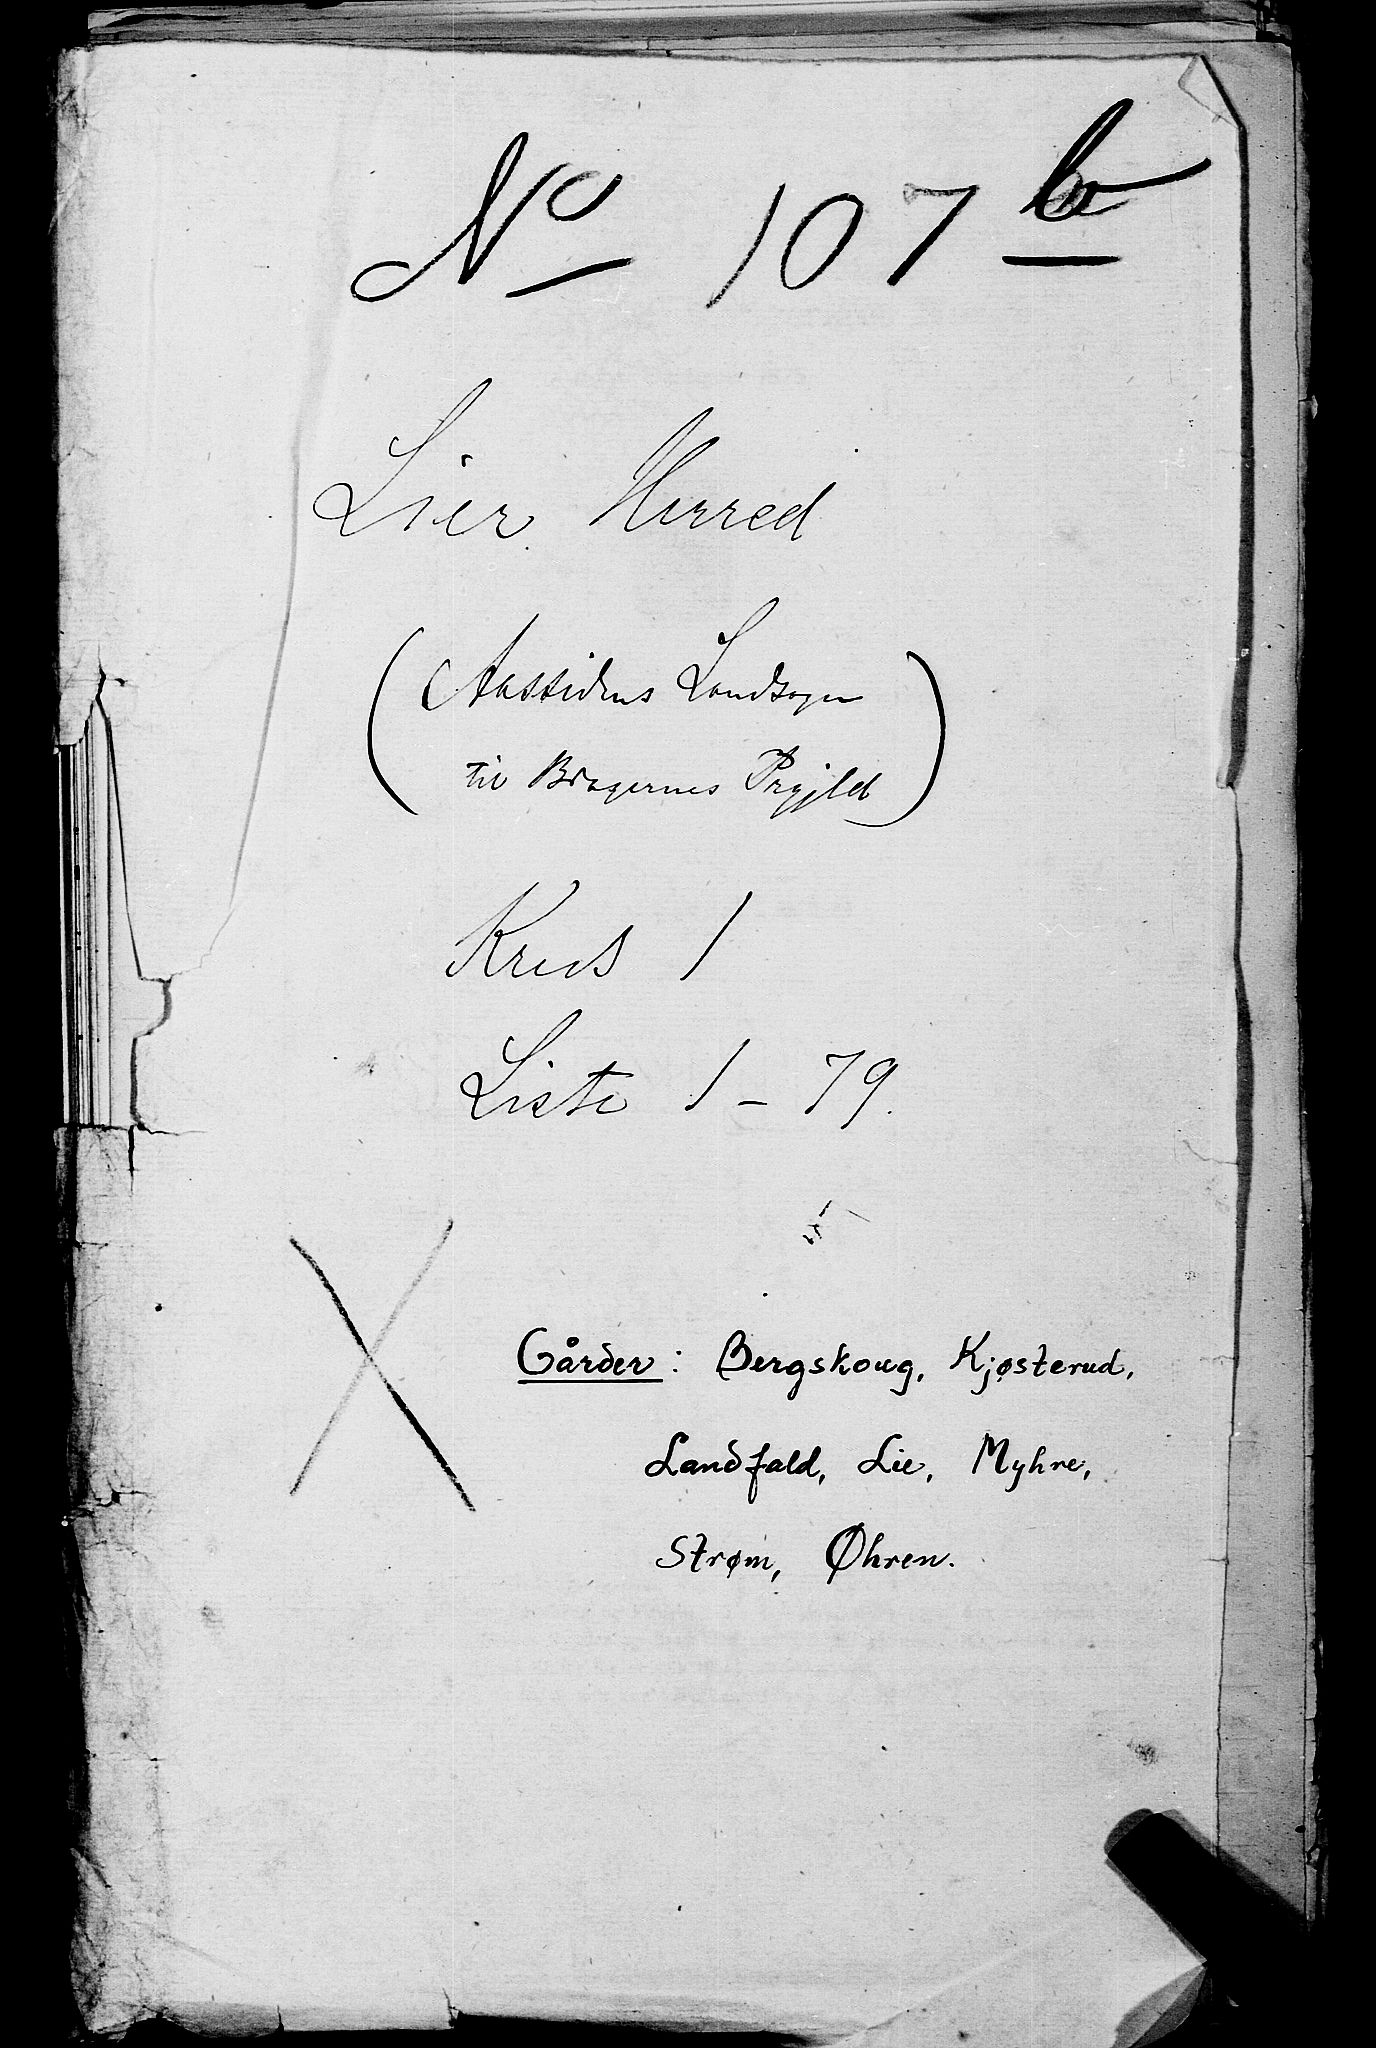 No 107 b
Lier Herred
(Aassidens Landsogn
til Bragernes Prgjld)
Kreds 1
Liste 1 - 79.
Gårder: Bergskoug, Kjøsterud,
Landfald, Lie, Myhre,
Strøm, Øhren.